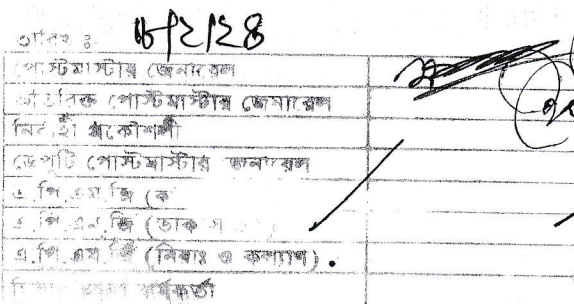 তারিখ : ৮/২/২৪
পোস্টমাস্টার জেনারেল
অতিরিক্ত পোস্টমাস্টার জেনারেল
নির্বাহী প্রকৌশলী
ডেপুটি পোস্টমাস্টার জেনারেল
এ.পি.এম.জি (ক
এ.পি.এম.জি (ডাক
এ.পি.এম.জি (নিবাঃ ও কল্যাণ)
কর্মকর্তা